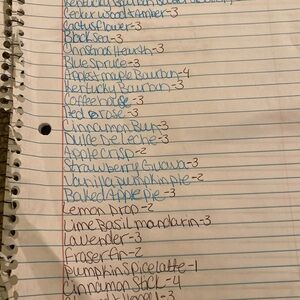 Kentucky Bourbon
Cedarwood & Amber-3
Cactus flower-3
Black Sea-3
Christmas Hearth-3
Blue Spruce-3
Apples & maple Bourbon-4
Kentucky Bourbon-3
Coffee house-3
Red rose-3
Cinnamon Bun-3
Dulce De Leche-3
Apple Crisp-2
Strawberry Guava-3
Vanilla pumpkin pie-2
Baked Apple Pie-3
Lemon Drop-2
Lime Basil mandarin-3
Lavender-3
Fraser Fir-2
Pumpkin Spice latte-1
Cinnamon Stick-4